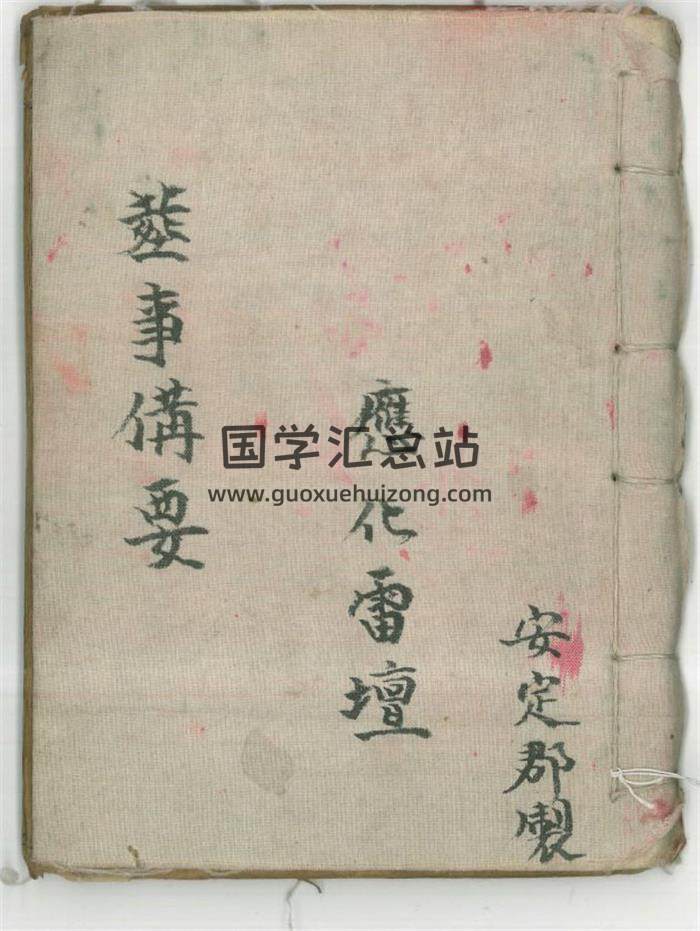 安定郡製
應化雷壇
塟事備要
国学汇总站
www.guoxuehuizong.com